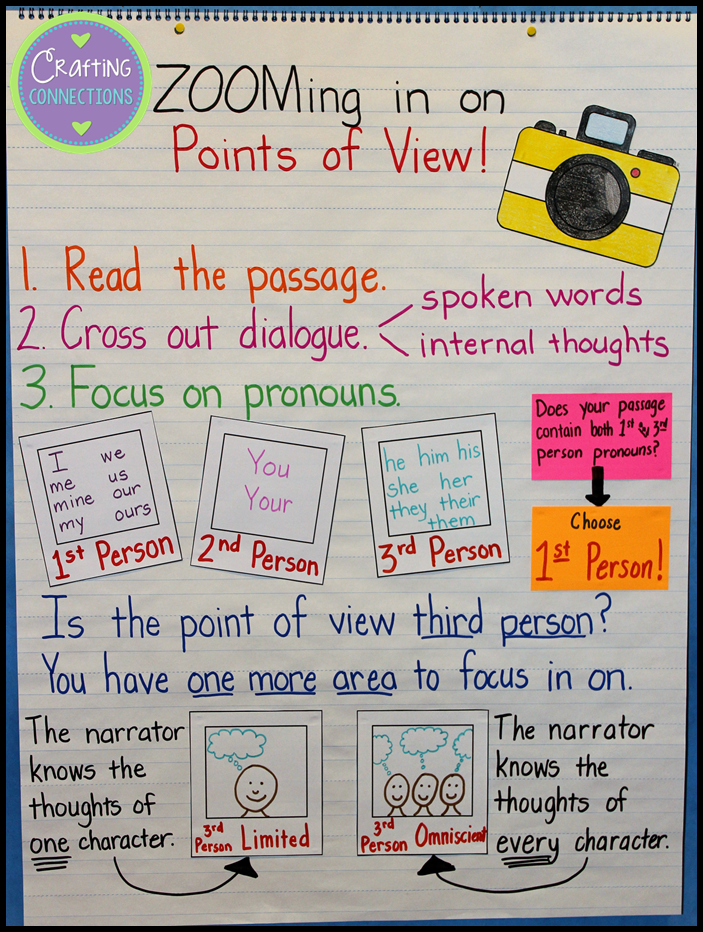 Crafting
CONNECTIONS
ZOOMing in on
Points of View!
1. Read the passage.
2. Cross out dialogue.
spoken words
internal thoughts
3. Focus on pronouns.
I we
me us
mine our
my ours
1st Person
You
Your
2nd Person
he him his
she her
they their
them
3rd Person
Does your passage
contain both 1st & 3rd
person pronouns?
Choose
1st Person!
Is the point of view third person?
You have one more area to focus in on.
The narrator
knows the
thoughts of
one character.
3rd
Person Limited
3rd
Person Omniscient
The narrator
knows the
thoughts of
every character.